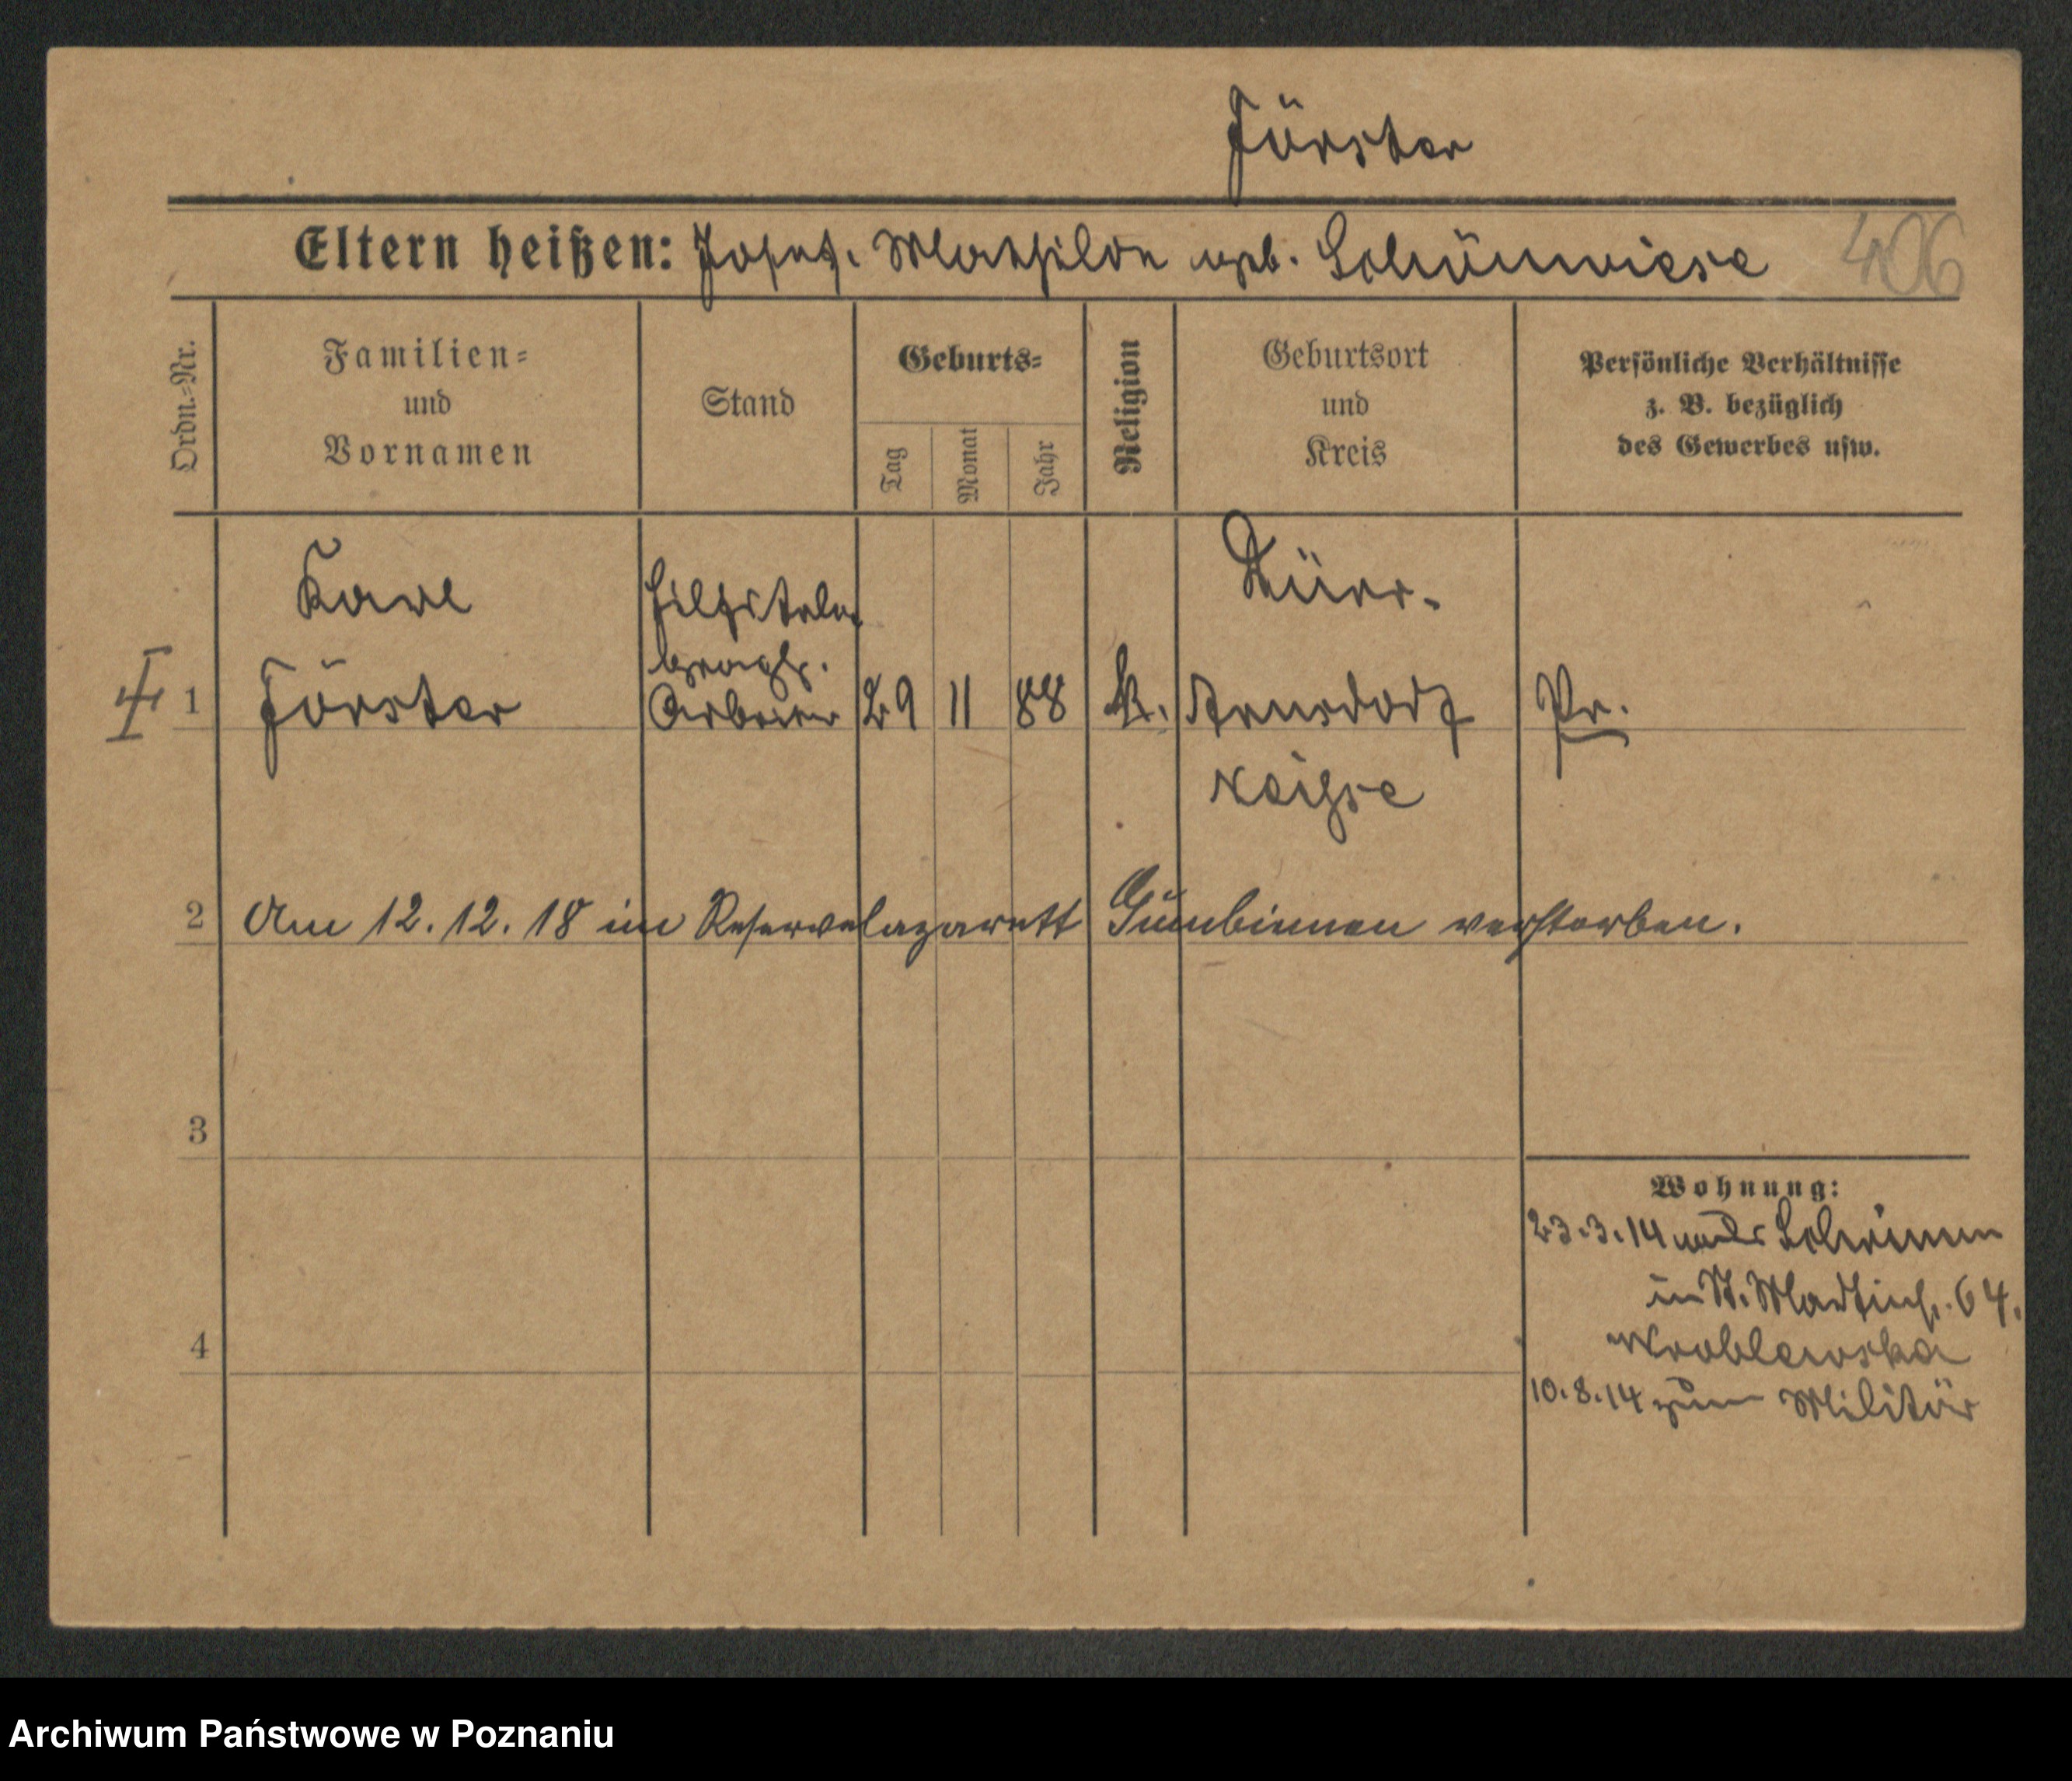 Förster
Eltern heißen: Josef. Mathilde geb. Schönwiese 406
Ordn.-Nr.
Familien-
und
Vornamen
Stand
Geburts-
Tag
Monat
Jahr
Religion
Geburtsort
und
Kreis
Persönliche Verhältnisse
z. B. bezüglich
des Gewerbes usw.
Karl
Förster
Hilfstele
graph.
Arbeiter
1 29 11 88 K.
Dürr.
Arnsdorf
Neisse
Pr.
2 Am 12. 12. 18 im Reservelazarett Gumbinnen verstorben.
3
Wohnung:
23.3.14
in St. Martinstr. 64.
Wroblewska
4
10.8.14 zum Militär
Archiwum Państwowe w Poznaniu